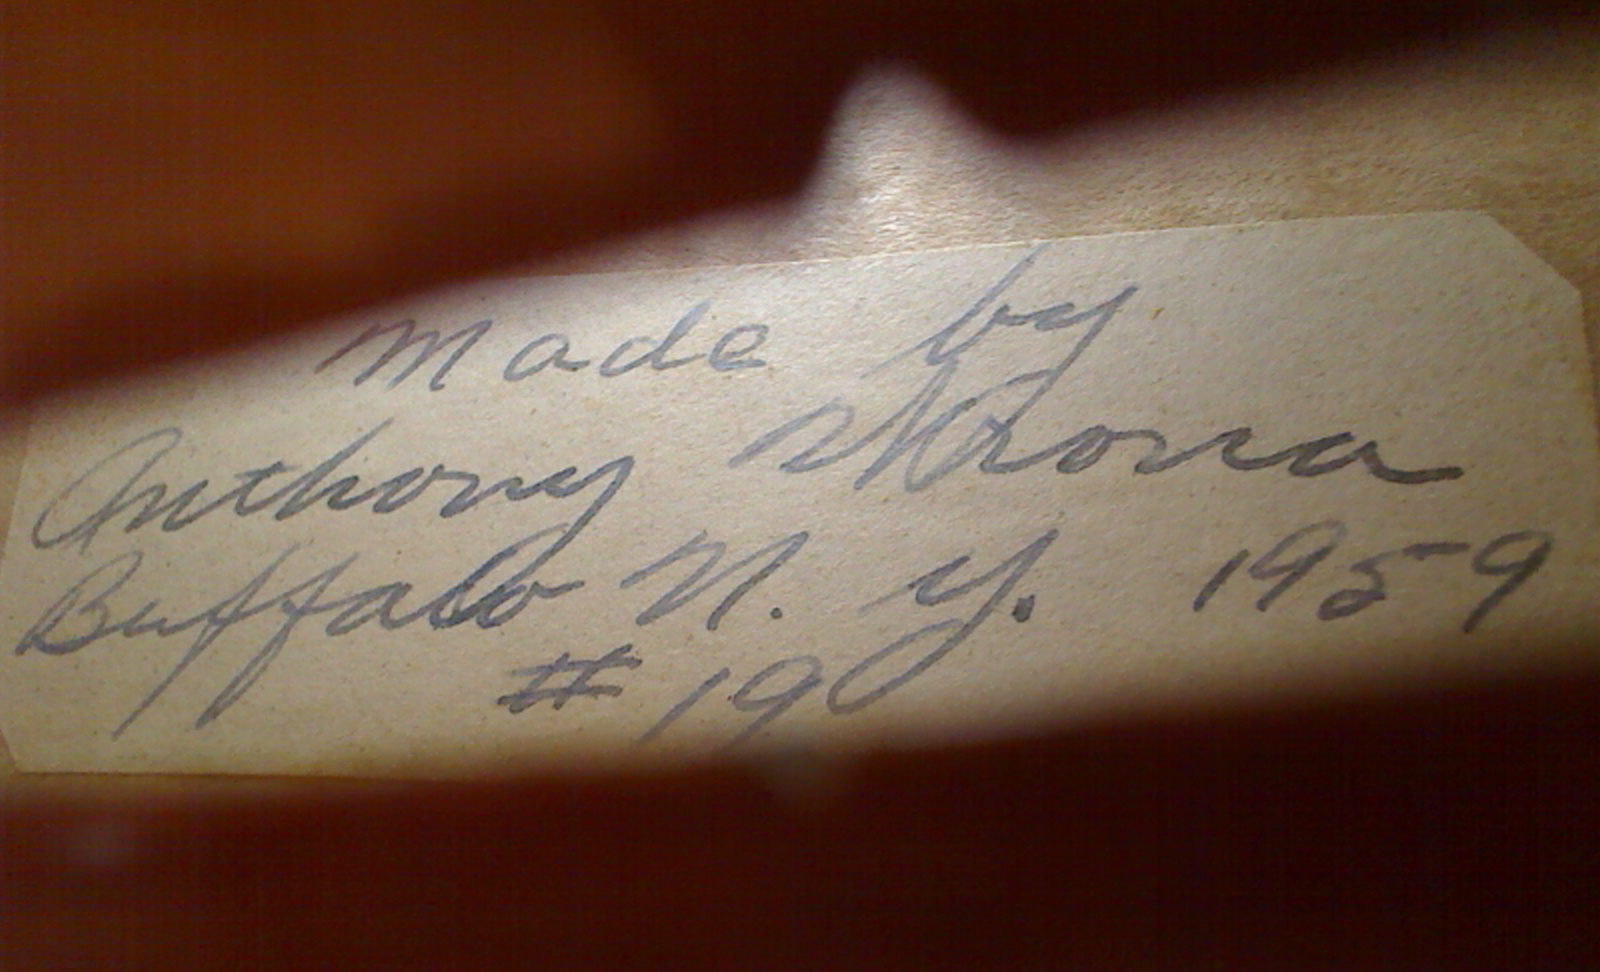 Made by
Anthony
Buffalo N. Y. 1959
# 19